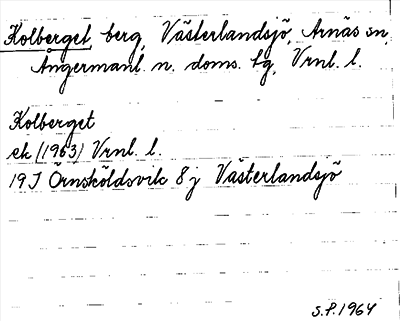 Kolberget, berg, Västerlandsjö, Arnäs sn,
Ångermanl. n. doms. tg, Vrnl. l.
Kolberget
ek (1963) Vrnl. l.
19J Örnsköldsvik 8j Västerlandsjö
S.P. 1964